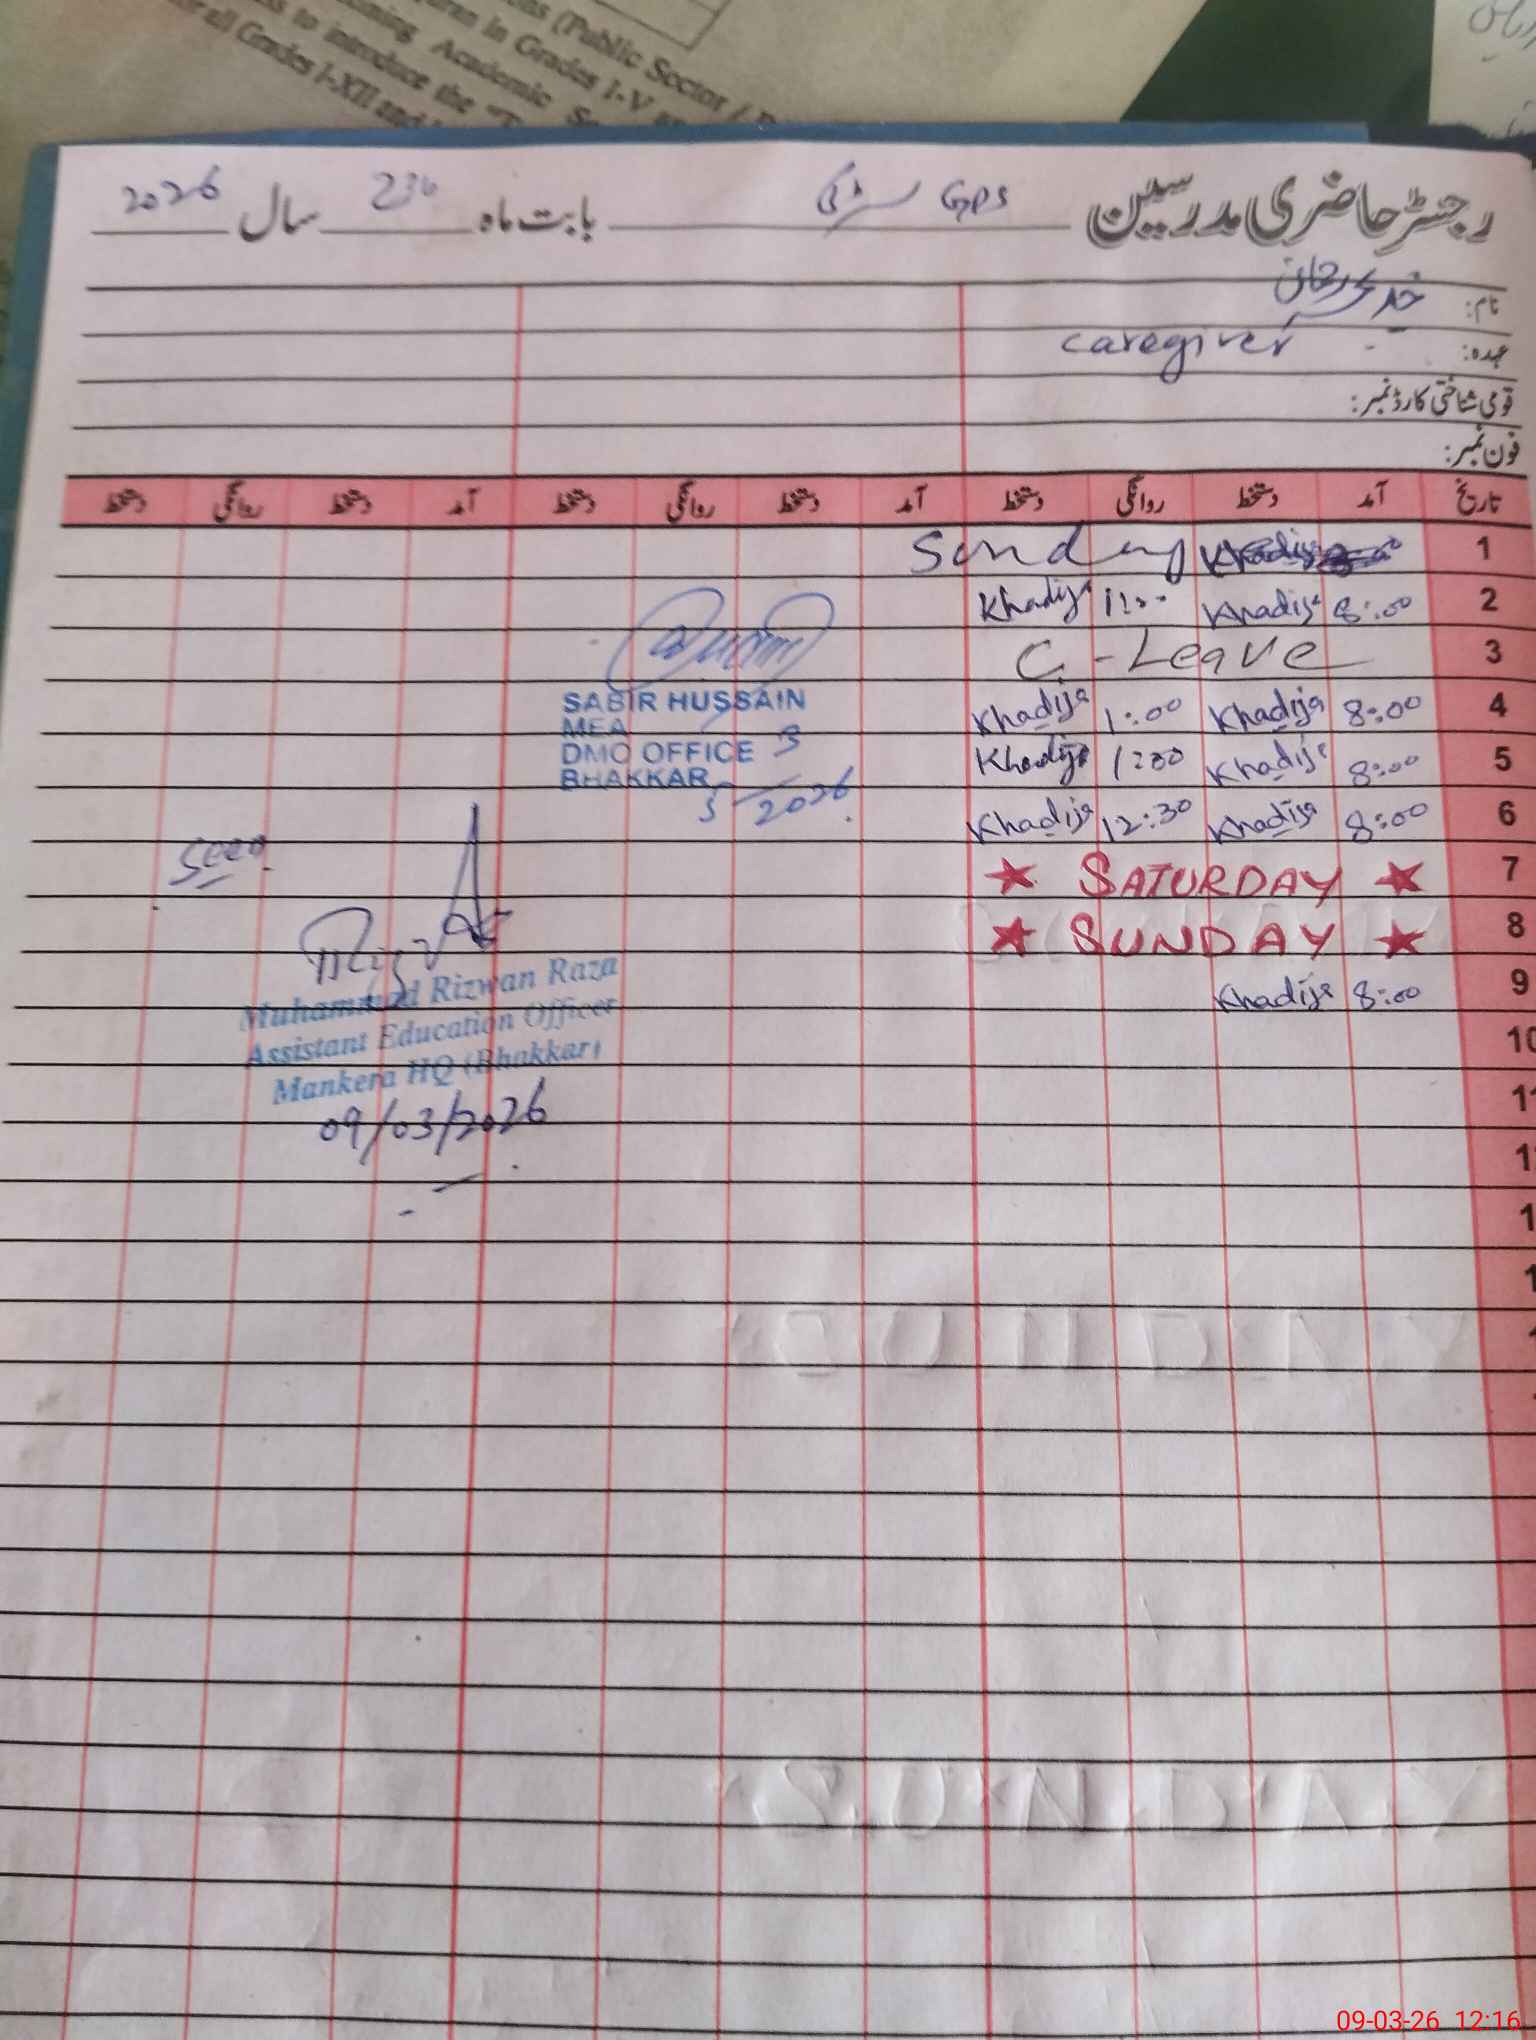 (Public Sector /
Quran in Grades I-V
Academic
to introduce the
all Grades I-XII and
رجسٹر حاضری مدرسین GPS بابت ماہ سال 2026
نام: خدیجہ رحمان
عہدہ: caregiver
قومی شناختی کارڈ نمبر:
فون نمبر:
تاریخ آمد دستخط روانگی دستخط آمد دستخط روانگی دستخط آمد دستخط روانگی دستخط
1 Khadija Sunday
2 8:00 Khadija 1:00 Khadija
3 C-Leave
4 8:00 Khadija 1:00 Khadija
5 8:00 Khadija 1:00 Khadija
6 8:00 Khadija 12:30 Khadija
7 SATURDAY
8 SUNDAY
9 8:00 Khadija
10
11
SABIR HUSSAIN
MEA
DMO OFFICE
BHAKKAR
5/3/2026
Seen
Muhammad Rizwan Raza
Assistant Education Officer
Mankera HQ (Bhakkar)
09/03/2026
SUNDAY
SUNDAY
09-03-26 12:16